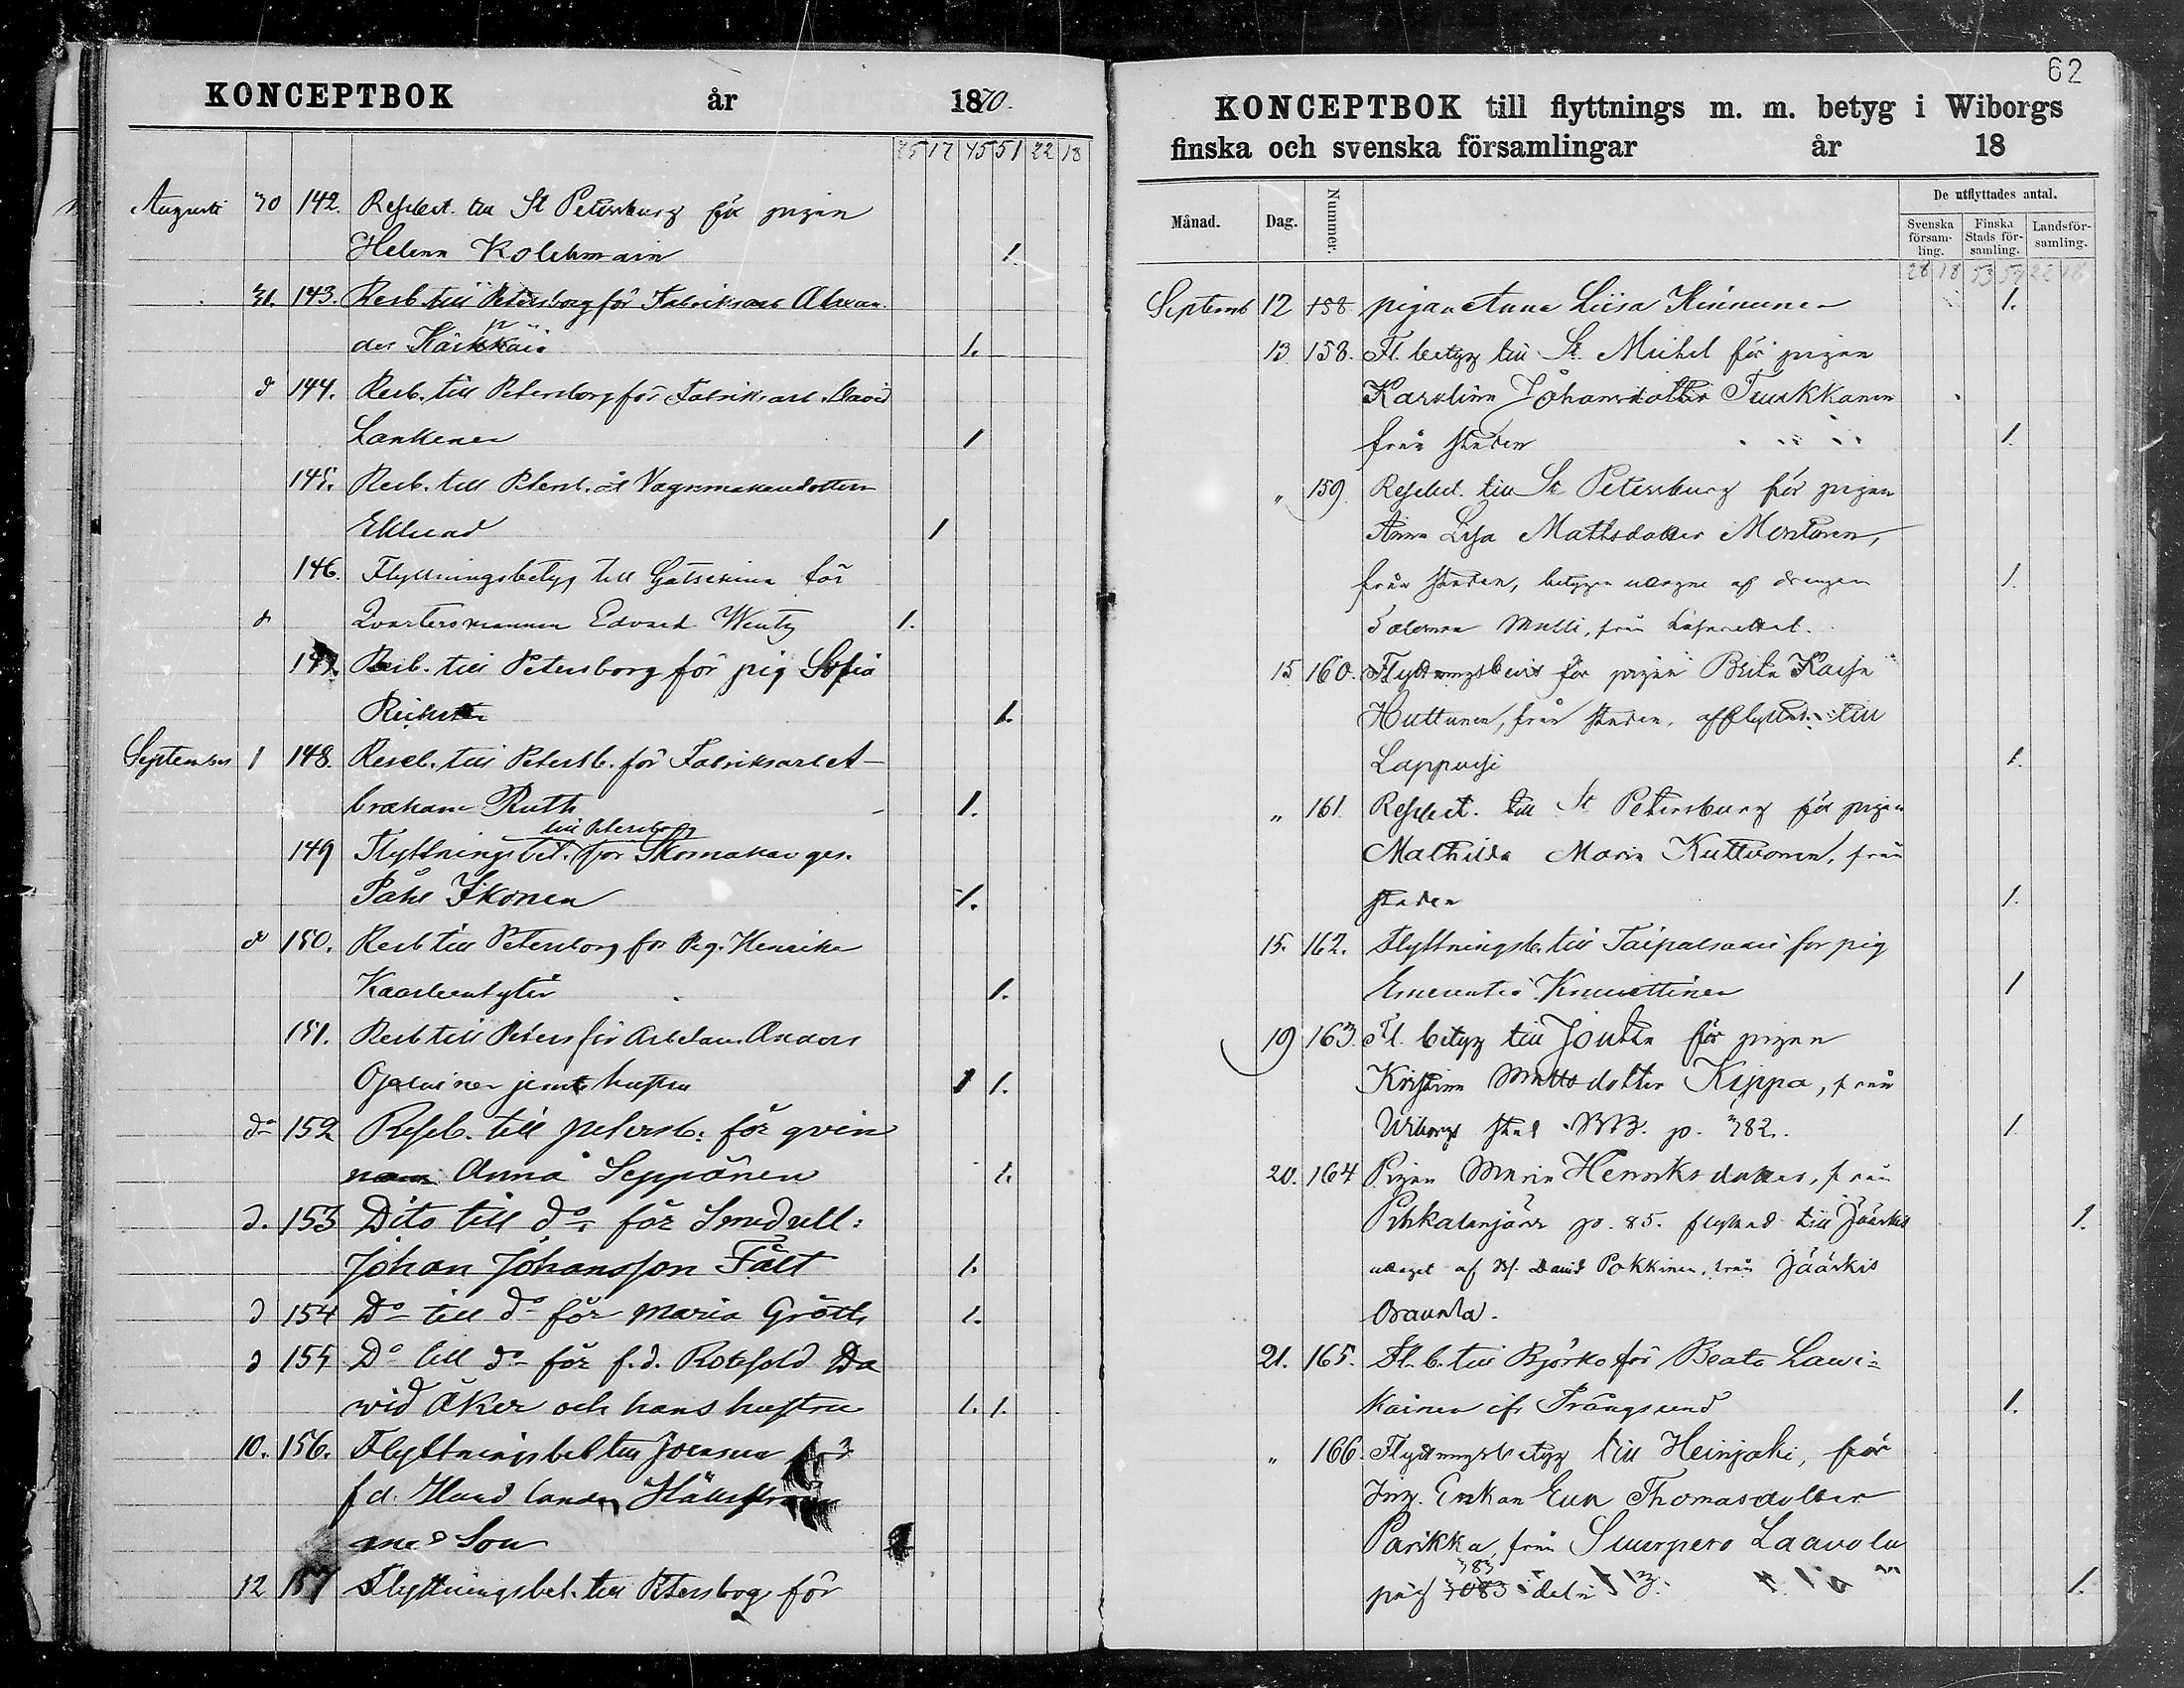 KONCEPTBOK år 1870.
25 17 45 51 22 18
Augusti 30 142. Resebet. till St Petersburg för pigan
Helena Kolehmain 1.
31. 143. Resb. till Petersborg för Fabriksarb Alexan
der Kärkkäin 1.
d 144. Resb. till Petersborg för Fabriksarb. David
Lankenen 1
145. Resb. till Petersb. åt Vagnmakaredottern
Eklund 1
146. Flyttningsbetyg till Gatschina för
d Qvartersmannen Edvard Wentz 1.
147. Resb. till Petersborg för pig Sofia
1.
September 1 148. Reseb. till Petersb. för Fabriksarb A-
braham Ruth 1.
till Petersborg
149 Flyttningsbet. för Skomakar ges.
Påhl Ikonen 1.
d 150. Resb till Petersborg för Pig. Henrika
1.
151. Resb till Peters för Arbetaren Anders
Ojalainen jemte hustru 1 1.
do 152 Reseb. till petersb: för qvin
nan Anna Seppönen 1.
d. 153 Dito till do för Smedsell:
Johan Johansson Fält 1.
d 154 Do till do för Maria Gröth 1.
d 155 Do till do för f.d. Rotesold Da
vid Åker och hans hustru 1. 1.
10. 156. Flyttningsbet till Joensuu för
f d.
Son
12 157 Flyttningsbet. till Petersborg för
62
KONCEPTBOK till flyttnings m. m. betyg i Wiborgs
finska och svenska församlingar år 18
Månad. Dag. Nummer. De utflyttades antal.
Svenska församling. Finska Stads församling. Landsförsamling.
28 18 53 59 22 18
Septemb 12 158 pigan Anna Liisa Kinnunen 1.
13 158. Fl. betyg till St. Michel för pigan
Karolina Johansdotter Tuukkanen
från staden 1.
„ 159 Resebet. till St Petersburg för pigan
Anna Lisa Mattsdotter Montonen,
från staden, betygen uttagne af drengen
Salomon Matti, från Lasarettet. 1.
15 160. Flyttningsbevis för pigan Brita Kaisa
Huttunen, från staden, afflyttad till
Lappvesi 1.
„ 161 Resebet. till St Petersburg för pigan
Mathilda Maria Kuttvonen, från
staden 1.
15. 162. Flyttningsb. till Taipalsaari för pig
Emerentia Knuuttinen 1
19 163. Fl. betyg till Joutse för pigan
Kristina Mattsdotter Kippa, från
Wiborgs stad p. 382. 1
20. 164 Pigan Maria Henriksdotter, från
Pihkalanjärvi p. 85. flyttad till Jääskis 1.
uttaget af David Pokkinen, från Jääskis
21. 165. Fl. b. till Björkö för Beata Lavi-
kainen ifr Trångsund 1.
„ 166. Flyttningsbetyg till Heinjoki, för
Enkan Eva Thomasdotter
Parikka, från Suurpero Laavola
383
pag 7083 1.